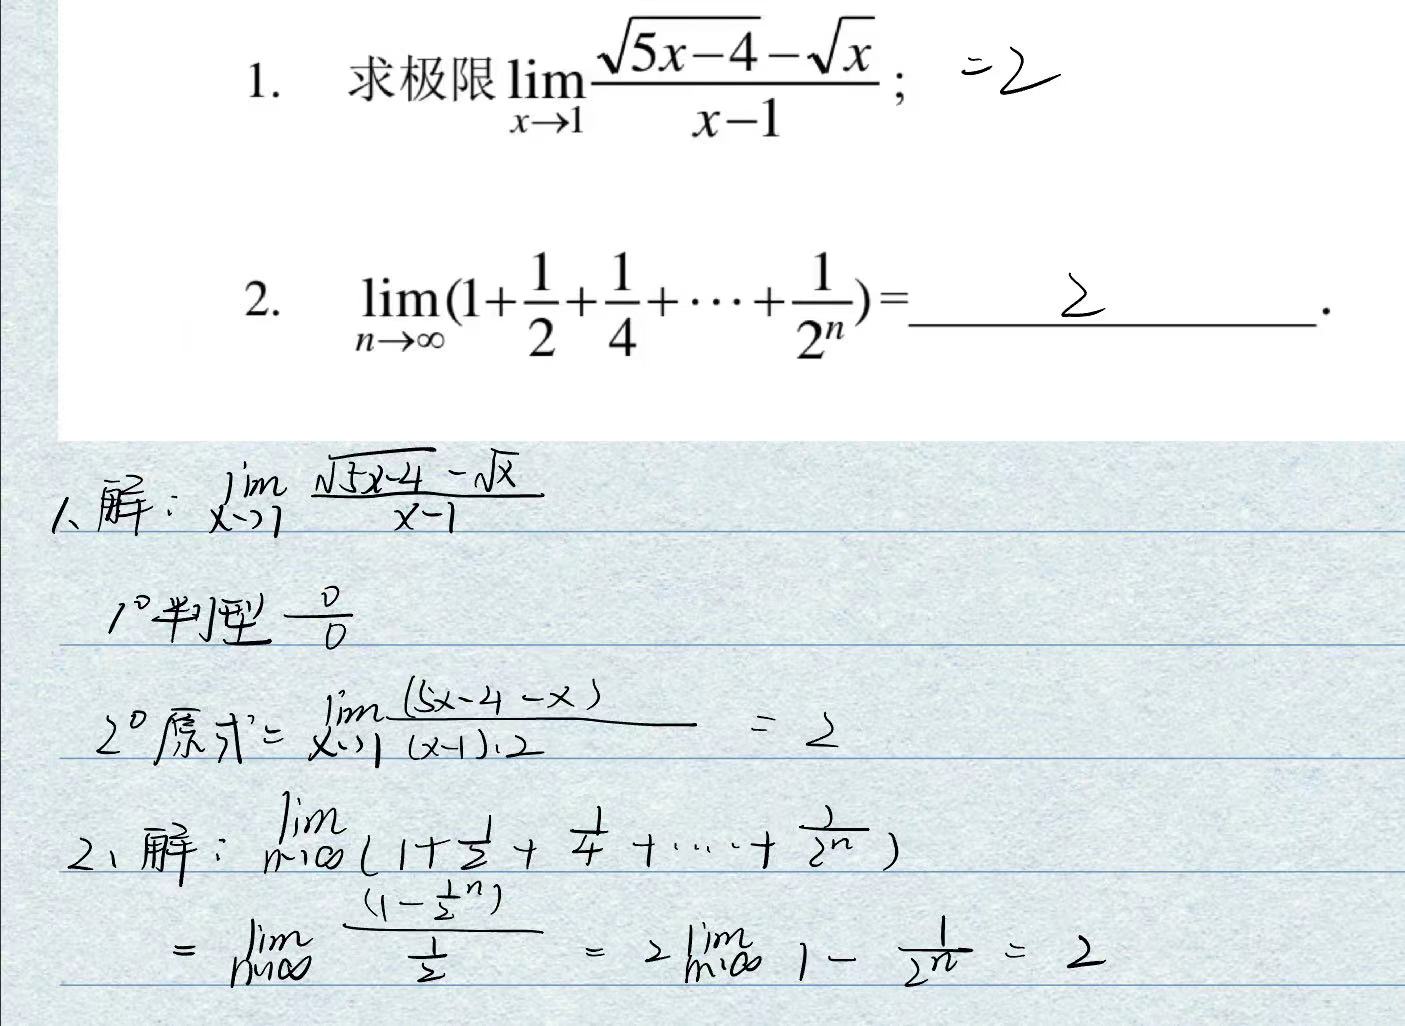 1. 求极限 lim_{x→1} (√(5x−4) − √x)/(x−1); =2
2. lim_{n→∞}(1+1/2+1/4+⋯+1/2^n)= 2 .
1、解: lim_{x→1} (√(5x−4) − √x)/(x−1)
1° 判型 0/0
2° 原式= lim_{x→1} (5x−4−x)/((x−1)·2) = 2
2、解: lim_{n→∞} (1+1/2+1/4+⋯+1/2^n)
= lim_{n→∞} (1−1/2^n)/(1/2) = 2 lim_{n→∞} 1−1/2^n = 2